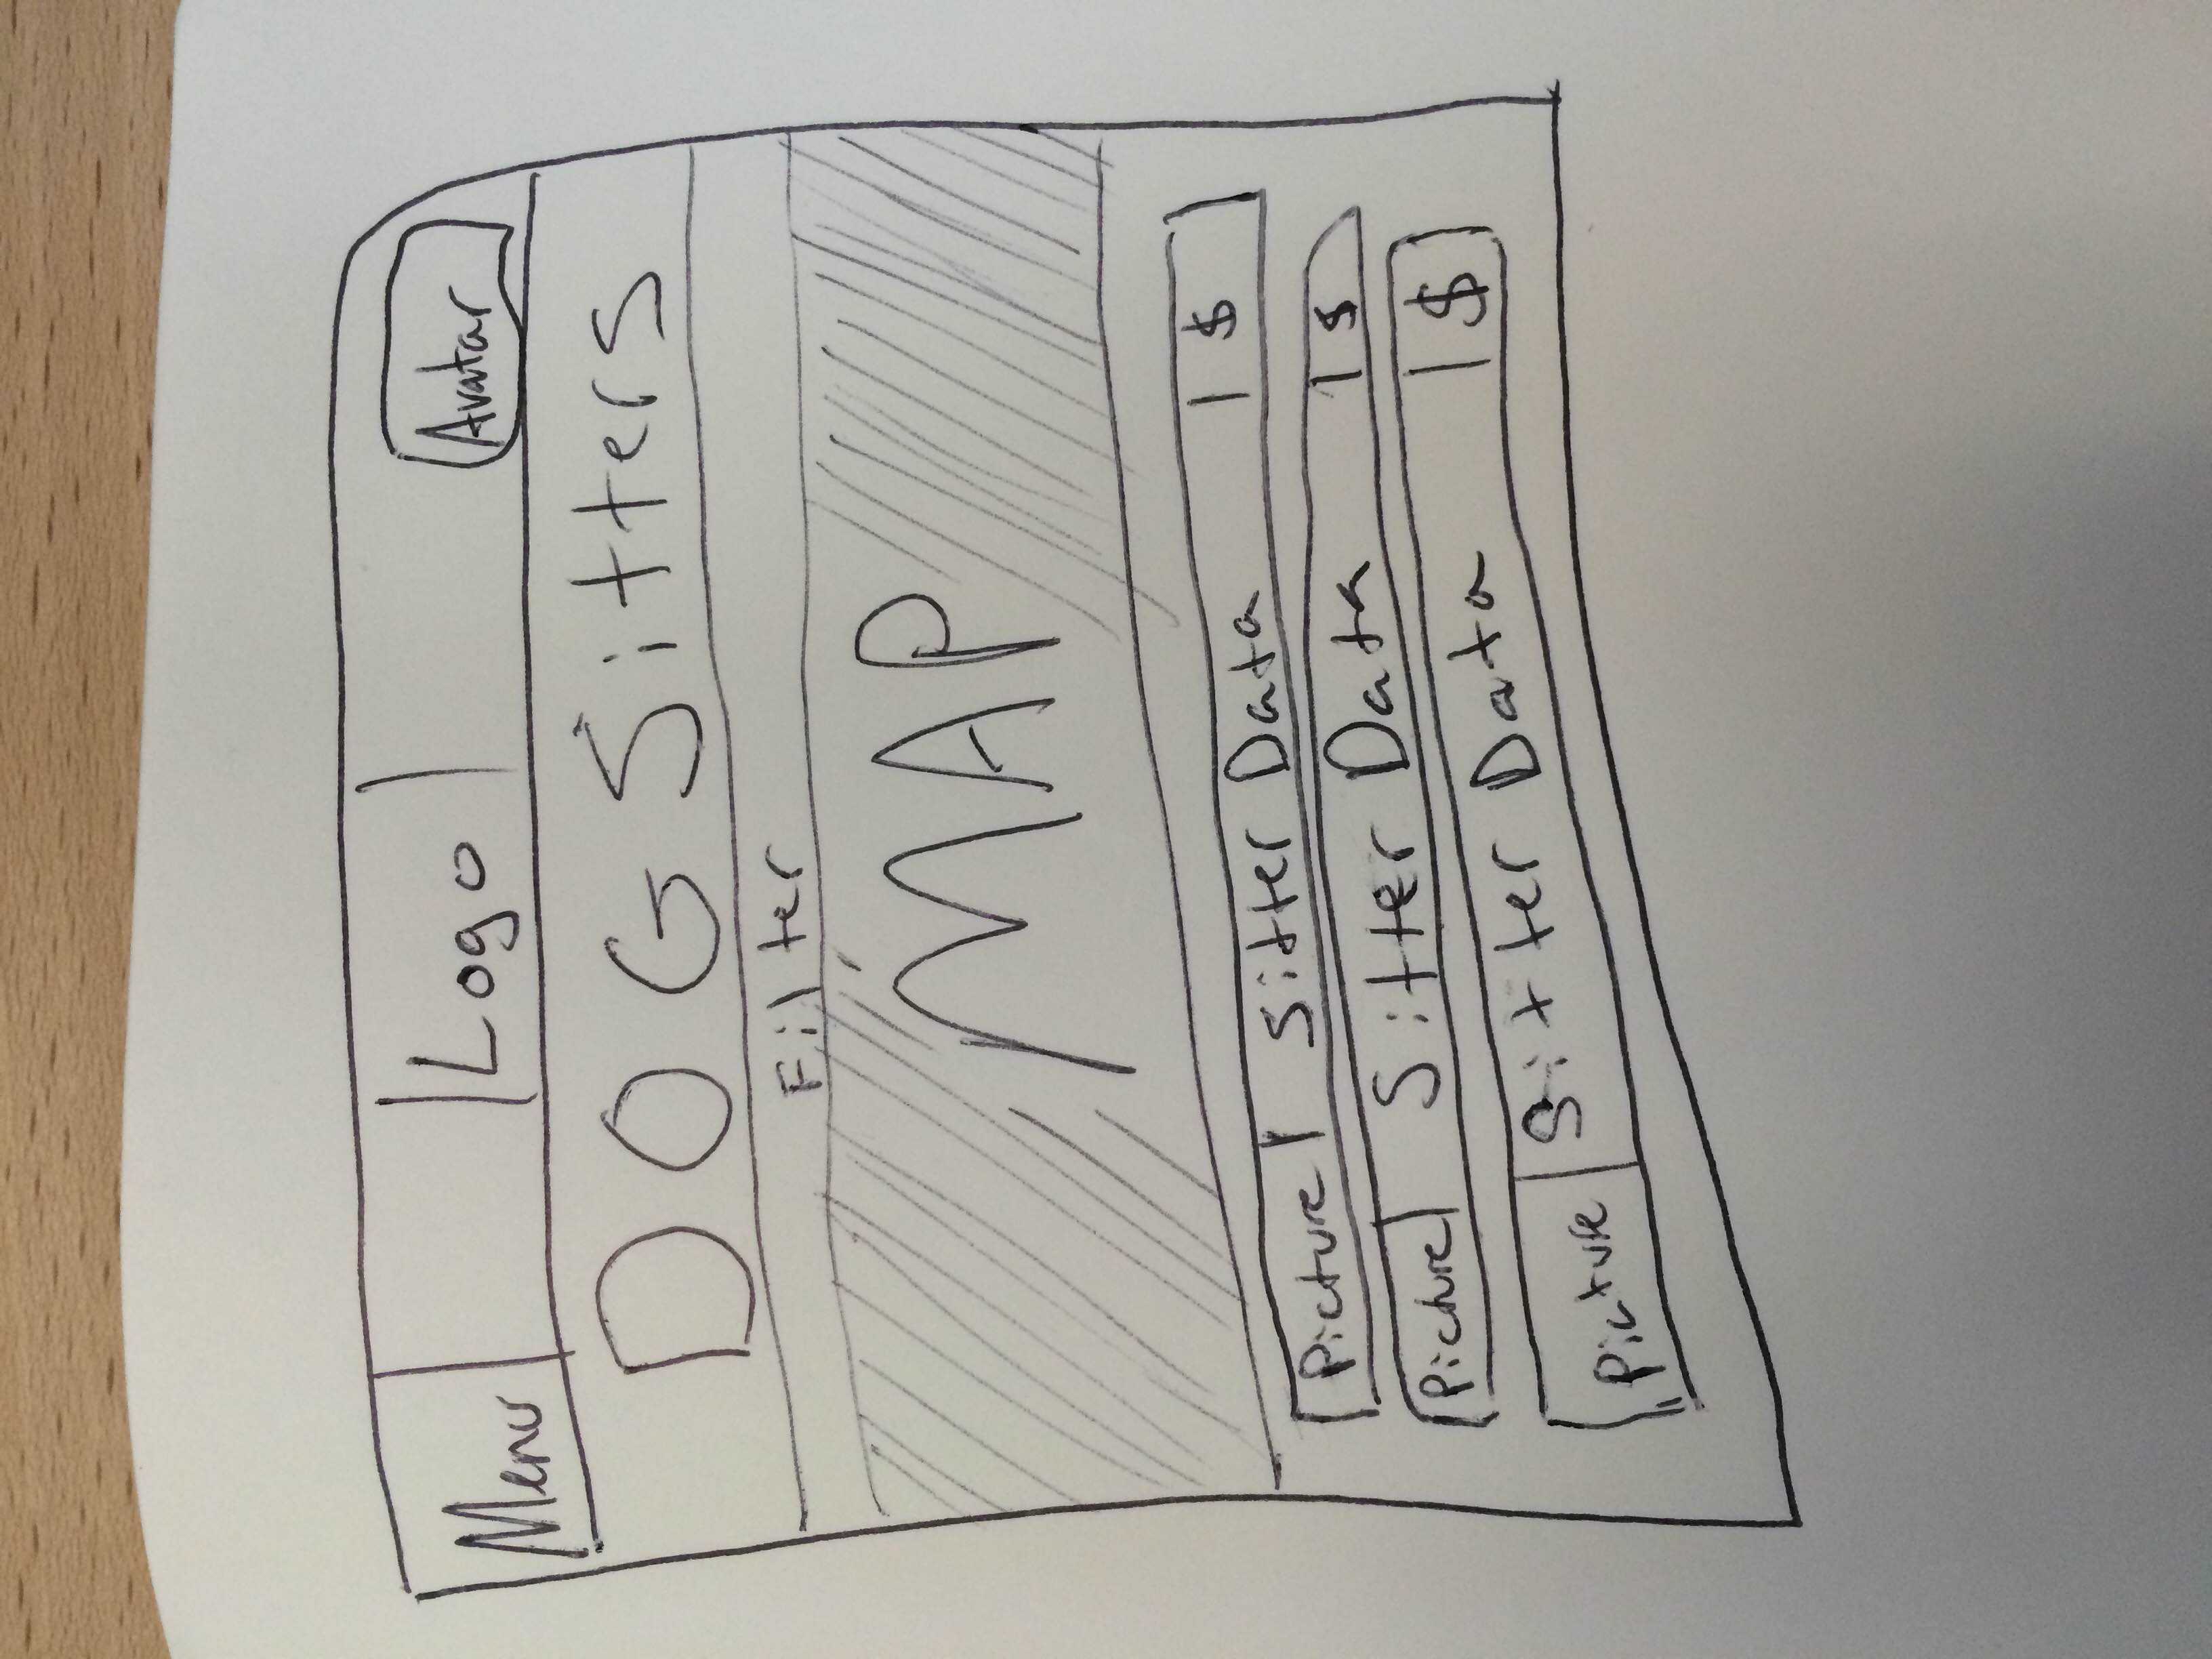 Menu Logo Avatar
DOG Sitters
Filter
MAP
Picture Sitter Data $
Picture Sitter Data $
Picture Sitter Data $